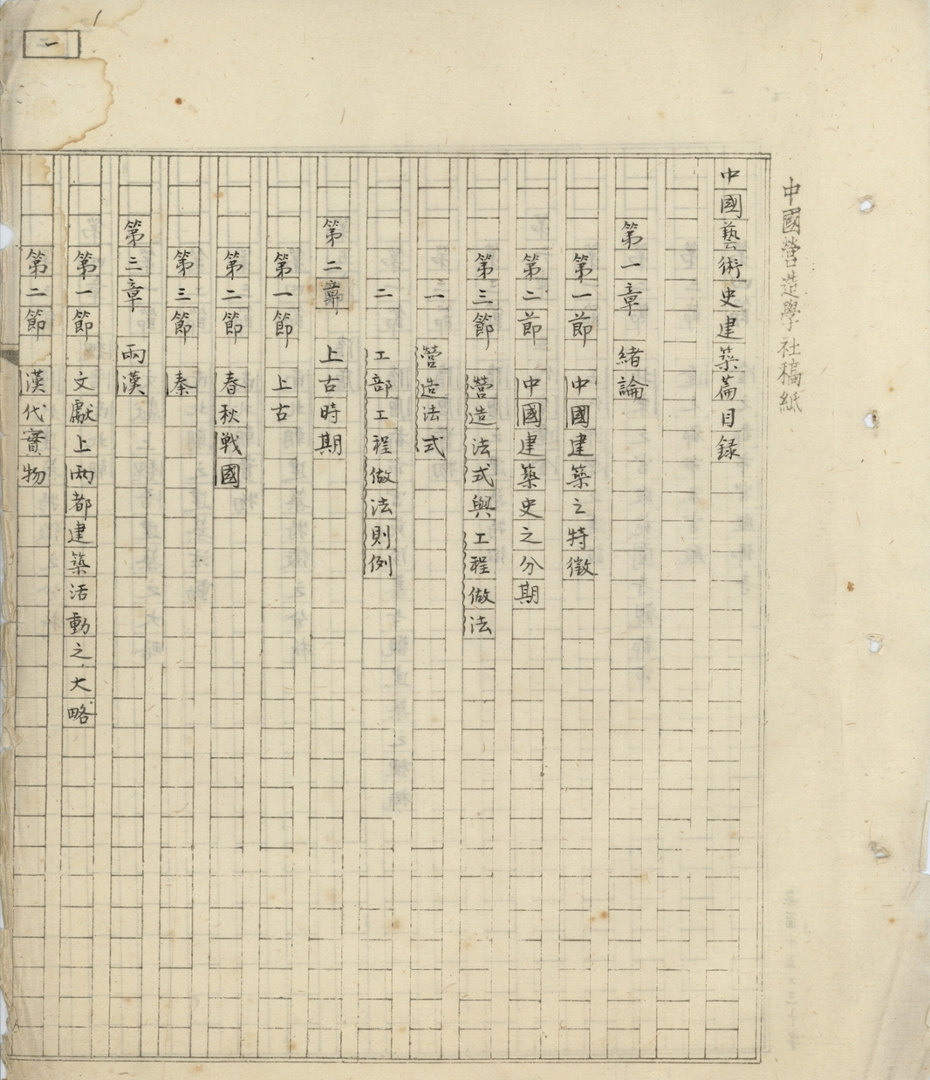 中國營造學社稿紙
中國藝術史建築篇目録
第一章 緒論
第一節 中國建築之特徵
第二節 中國建築史之分期
第三節 營造法式與工程做法
一 營造法式
二 工部工程做法則例
第二章 上古時期
第一節 上古
第二節 春秋戰國
第三節 秦
第三章 兩漢
第一節 文獻上兩都建築活動之大略
第二節 漢代實物
一